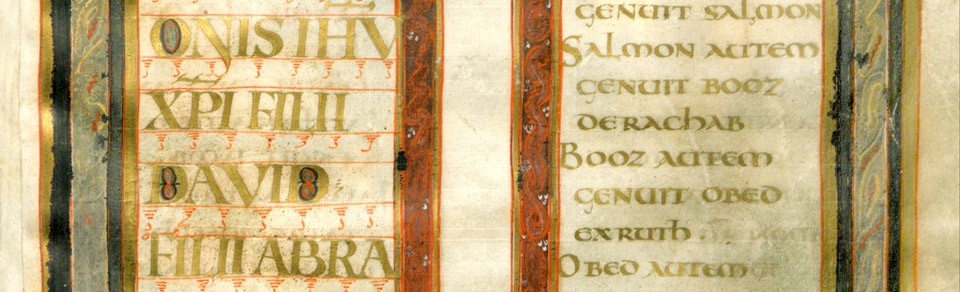 ONIS IHU
XPI FILII
DAVID
FILII ABRA
genuit salmon
Salmon autem
genuit booz
de rachab
Booz autem
genuit obed
ex ruth
Obed autem